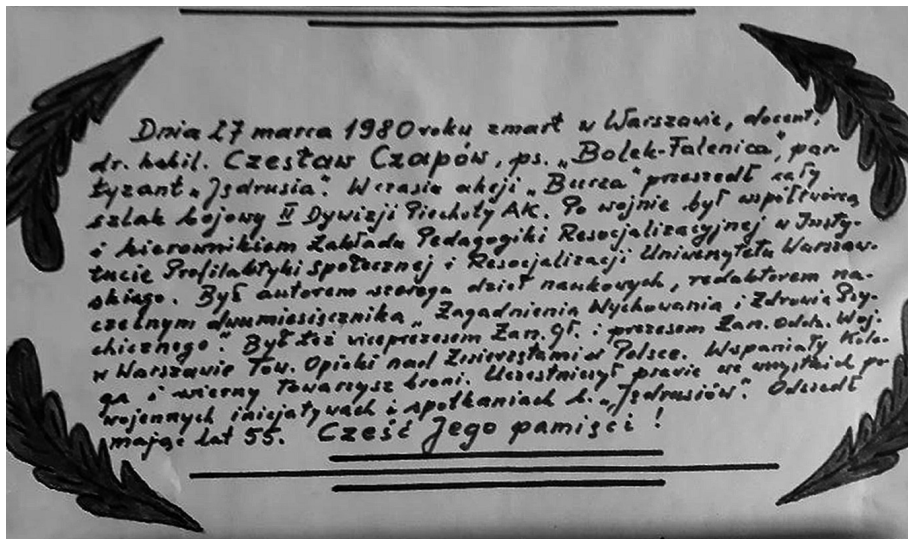 Dnia 27 marca 1980 roku zmarł w Warszawie, docent,
dr. habil. Czesław Czapów, ps. „Bolek-Falenica”, par-
tyzant „Jędrusia”. W czasie akcji „Burza” przeszedł cały
szlak bojowy II Dywizji Piechoty AK. Po wojnie był współtwórcą
i kierownikiem Zakładu Pedagogiki Resocjalizacyjnej w Insty-
tucie Profilaktyki Społecznej i Resocjalizacji Uniwersytetu Warszaw-
skiego. Był autorem szeregu dzieł naukowych, redaktorem na-
czelnym dwumiesięcznika „Zagadnienia Wychowania i Zdrowia Psy-
chicznego”. Był też viceprezesem Zarz. Gł. i prezesem Zarz. Oddz. Woj.
w Warszawie Tow. Opieki nad Zwierzętami w Polsce. Wspaniały Kole-
ga i wierny Towarzysz broni. Uczestniczył prawie we wszystkich po-
wojennych inicjatywach i spotkaniach b. „Jędrusiów”. Odszedł
mając lat 55. Cześć Jego pamięci!